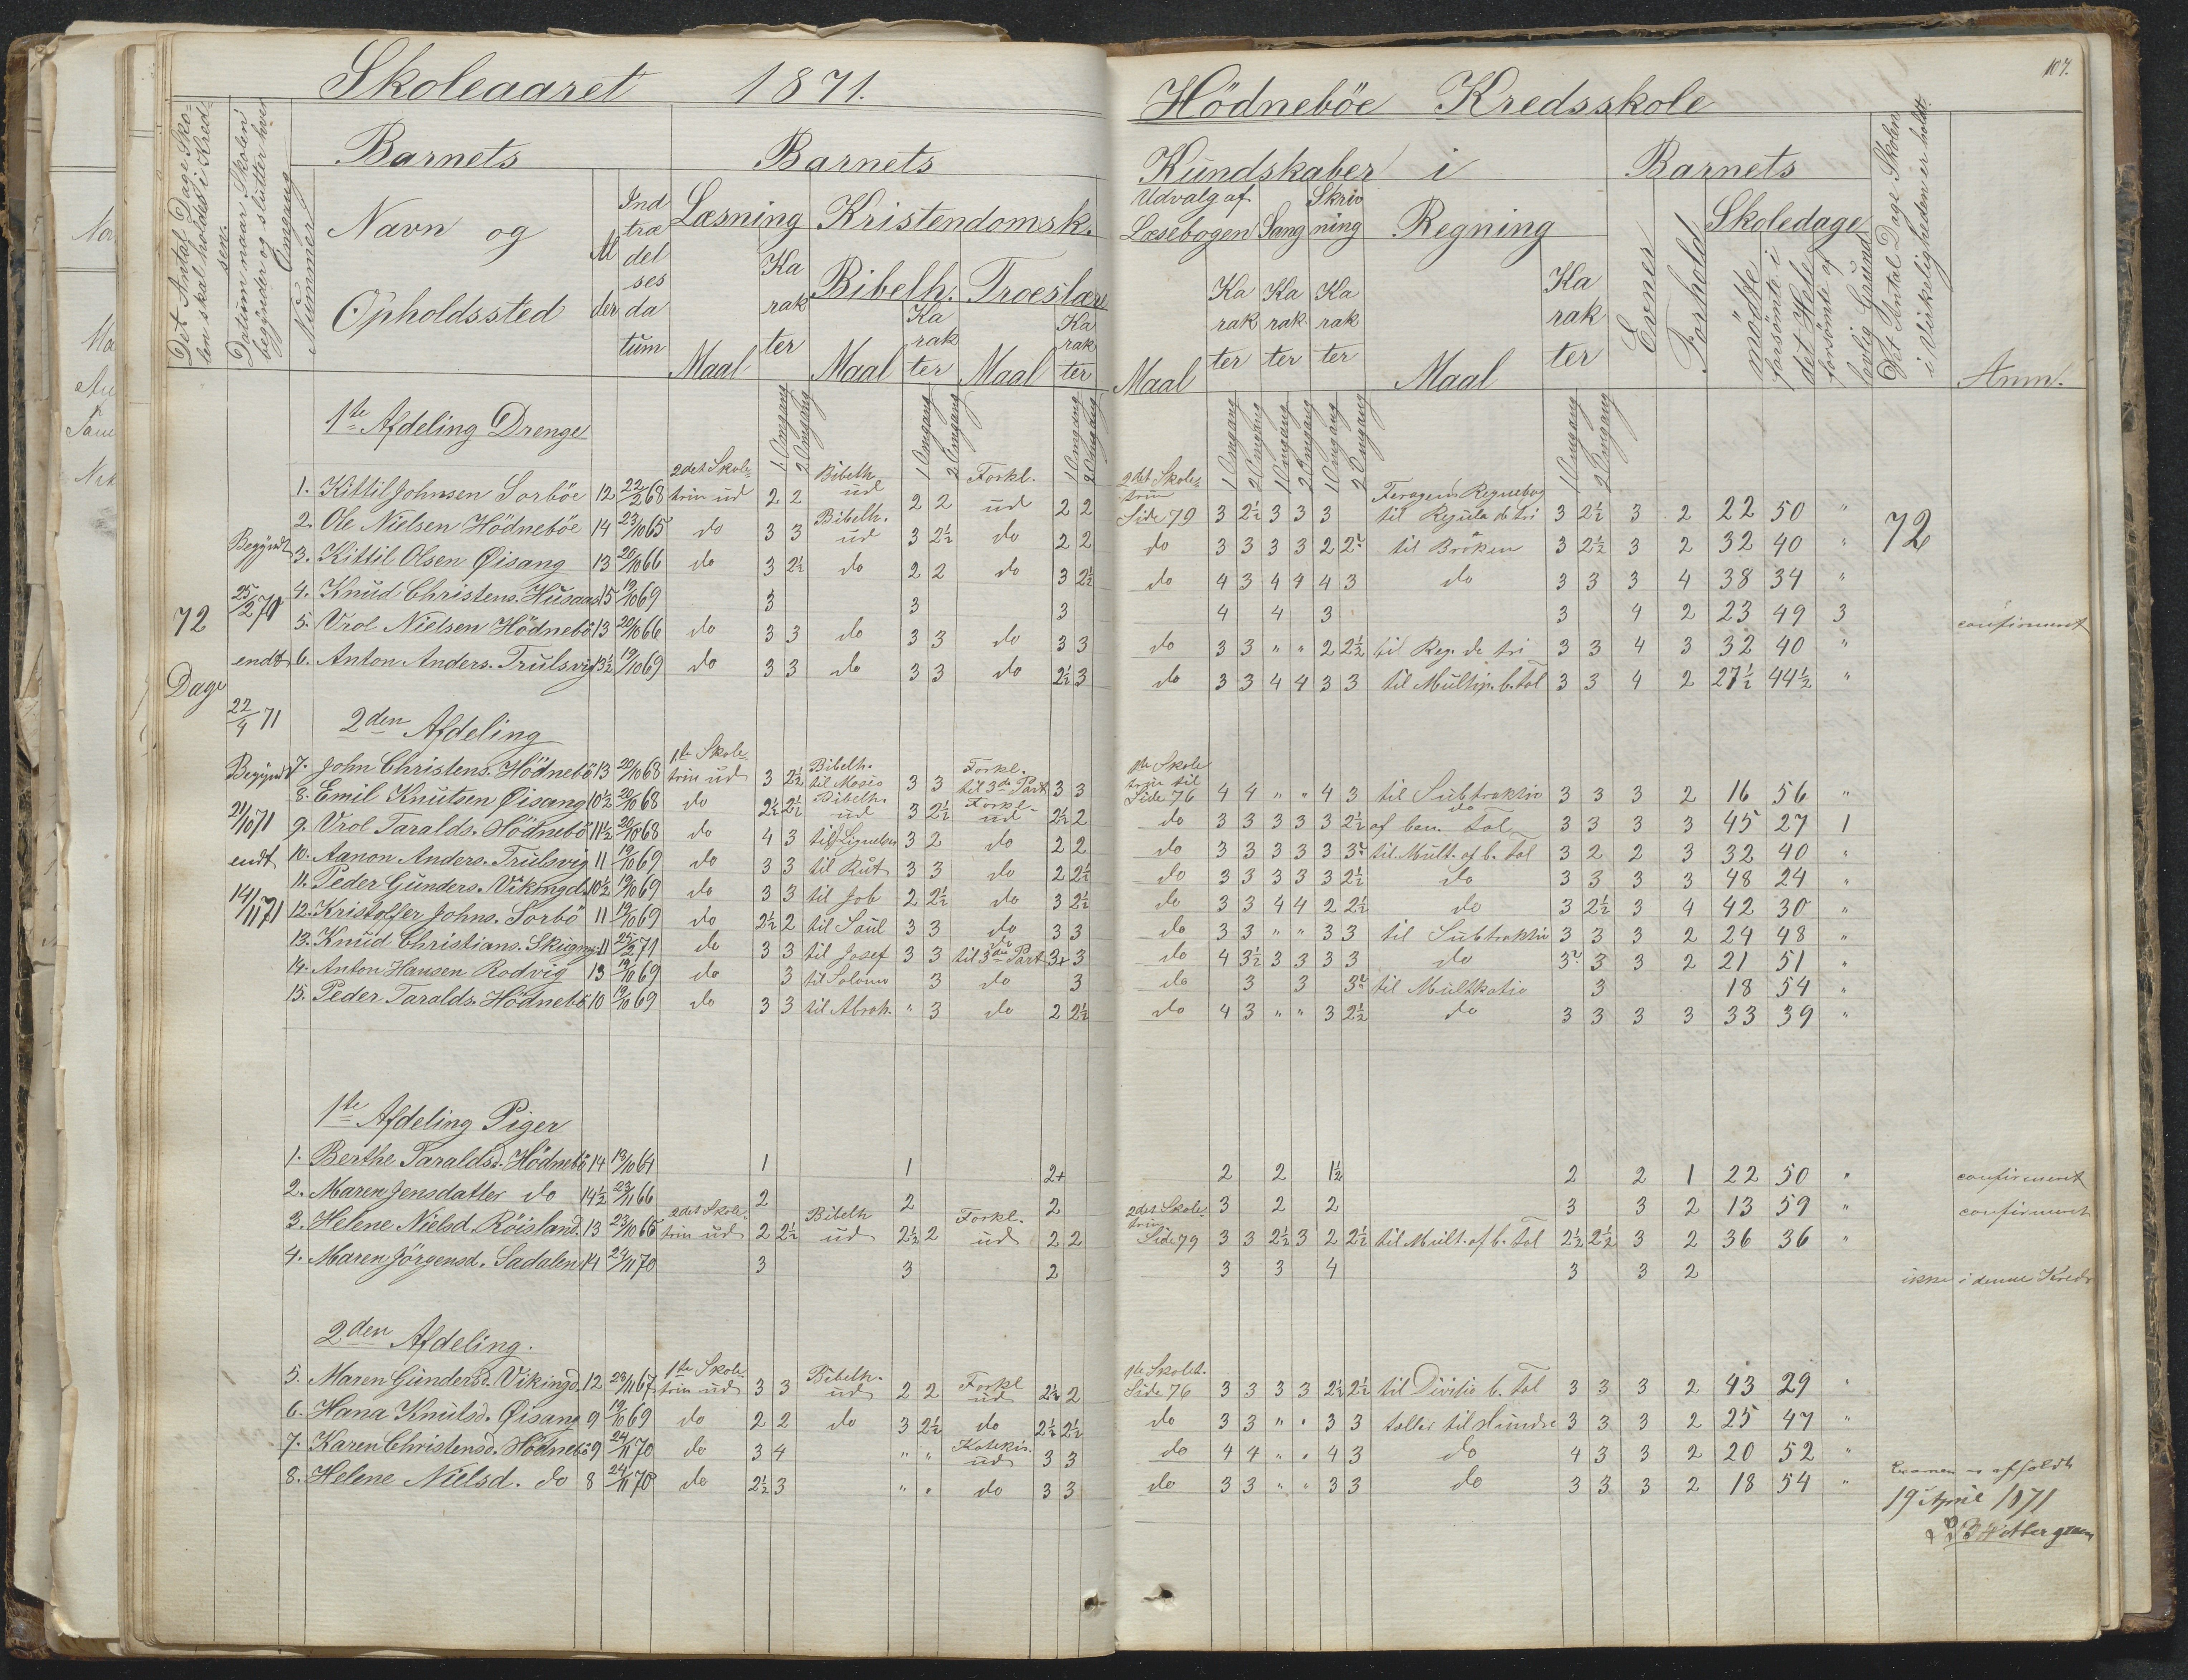 Skoleaaret 1871.
Hödnebøe Kredsskole
107.
Det Antal Dage Skolen skal holdes i Kredsen.
Datum naar Skolen begynder og slutter hver Omgang
Nummer
Barnets
Navn og Opholdssted
Alder
Indtrædelsesdatum
Barnets
Kundskaber i
Læsning
Maal
Karakter
Kristendomsk.
Bibelh.
Maal
Karakter
Troeslære
Maal
Karakter
Udvalg af Læsebogen
Maal
Karakter
Sang
Karakter
Skrivning
Karakter
Regning
Maal
Karakter
Barnets
Evner
Forhold
Skoledage
mødte
forsömte i det Hele
forsömte af lovlig Grund
Det Antal Dage Skolen i Virkeligheden er holdt.
Anm.
1 Omgang 2 Omgang 1 Omgang 2 Omgang 1 Omgang 2 Omgang 1 Omgang 2 Omgang 1 Omgang 2 Omgang 1 Omgang 2 Omgang 1 Omgang 2 Omgang
72 Dage
Begyndt 25/2 70 endt 22/4 71
Begyndt 21/10 71 endt 14/11 71
72
1te Afdeling Drenge
1. Kittil Johnsen Sorböe 12 22/2 68 2det Skoletrin ud 2 2 Bibelh. ud 2 2 Forkl. ud 2 2 2det Skoletrin Side 79 3 2½ 3 3 3 Feragens Regnebog til Regula de tri 3 2½ 3 2 22 50 "
2. Ole Nielsen Hödneböe 14 23/10 65 do 3 3 Bibelh. ud 3 2½ do 2 2 do 3 3 3 3 2 2 til Bröken 3 2½ 3 2 32 40 "
3. Kittil Olsen Øisang 13 20/10 66 do 3 2½ do 2 2 do 3 2½ do 4 3 4 4 4 3 do 3 3 3 4 38 34 "
4. Knud Christens. Husaas 15 19/10 69 3 3 3 4 4 3 3 4 2 23 49 3 confirmert
5. Vrol Nielsen Hödnebö 13 20/10 66 do 3 3 do 3 3 do 3 3 do 3 3 " " 2 2½ til Reg. de tri 3 3 4 3 32 40 "
6. Anton Anders. Trulsvig 13½ 19/10 69 do 3 3 do 3 3 do 2½ 3 do 3 3 4 4 3 3 til Multip. b. Tal 3 3 4 2 27½ 44½ "
2den Afdeling
7. John Christens. Hödnebö 13 20/10 68 1te Skoletrin ud 3 2½ Bibelh. til Mosis 3 3 Forkl. til 3die Part 3 3 1te Skoletrin til Side 76 4 4 " " 4 3 til Subtraktio 3 3 3 2 16 56 "
8. Emil Knutsen Øisang 10½ 20/10 68 do 2½ 2½ Bibelh. ud 3 2½ Forkl. ud 2½ 2 do 3 3 3 3 3 2½ do af ben. Tal 3 3 3 3 45 27 1
9. Vrol Taralds. Hödnebö 11½ 20/10 68 do 4 3 til Lignelsen 3 2 do 2 2 do 3 3 3 3 3 3 til Mult. af b. Tal 3 2 2 3 32 40 "
10. Aanon Anders. Trulsvig 11 19/10 69 do 3 3 til Rut 3 3 do 2 2½ do 3 3 3 3 3 2½ do 3 3 3 3 48 24 "
11. Peder Gunders. Vikingd. 10½ 19/10 69 do 3 3 til Job 2 2½ do 3 2½ do 3 3 4 4 2 2½ do 3 2½ 3 4 42 30 "
12. Kristoffer Johns. Sorbö 11 19/10 69 do 2½ 2 til Saul 3 3 do 3 3 do 3 3 " " 3 3 til Subtraktio 3 3 3 2 24 48 "
13. Knud Christians. 11 25/2 71 do 3 3 til Josef 3 3 do til 3die Part 3+ 3 do 4 3½ 3 3 3 3 do 3 3 3 2 21 51 "
14. Anton Hansen Rodvig 13 19/10 69 do 3 til Solomo 3 do 3 do 3 3 3 til Multkatio 3 18 54 "
15. Peder Taralds. Hödnebö 10 19/10 69 do 3 3 til Abrah. " 3 do 2 2½ do 4 3 " " 3 2½ do 3 3 3 3 33 39 "
1te Afdeling Piger
1. Berthe Taraldsd. Hödnebö 14 19/10 64 1 1 2+ 2 2 1½ 2 2 1 22 50 " confirmert
2. Maren Jensdatter do 14½ 23/11 66 2 2 2 3 2 2 3 3 2 13 59 " confirmert
3. Helene Nielsd. Röisland. 13 23/10 66 2det Skoletrin ud 2 2½ Bibelh ud 2½ 2 Forkl. ud 2 2 2det Skoletrin Side 79 3 3 2½ 3 2 2½ til Mult. af b. Tal 2½ 2½ 3 2 36 36 "
4. Maren Jörgensd. Sadalen 14 24/11 70 3 3 2 3 3 4 3 3 2 ikke i denne Kreds
2den Afdeling.
5. Maren Gundersd. Vikingd. 12 28/11 67 1te Skoletrin ud 3 3 Bibelh. ud 2 2 Forkl ud 2½ 2 1te Skolet. Side 76 3 3 3 3 2½ 2½ til Divisio b. Tal 3 3 3 2 43 29 "
6. Hana Knutsd. Øisang 9 19/10 69 do 2 2 do 3 2½ do 2½ 2½ do 3 3 " " 3 3 tæller til Hundre 3 3 3 2 25 47 "
7. Karen Christensd. Hödnebö 9 24/11 70 do 3 4 " " Katekis. ud 3 3 do 4 4 " " 4 3 do 4 3 3 2 20 52 "
8. Helene Nielsd. do 8 24/11 70 do 2½ 3 " " do 3 3 do 3 3 " " 3 3 do 3 3 3 2 18 54 "
Examen er afholdt
19 April 1871